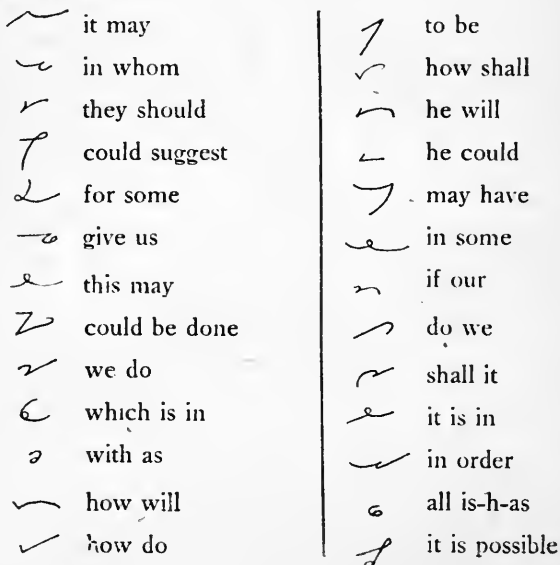 it may
in whom
they should
could suggest
for some
give us
this may
could be done
we do
which is in
with as
how will
how do
to be
how shall
he will
he could
may have
in some
if our
do we
shall it
it is in
in order
all is-h-as
it is possible